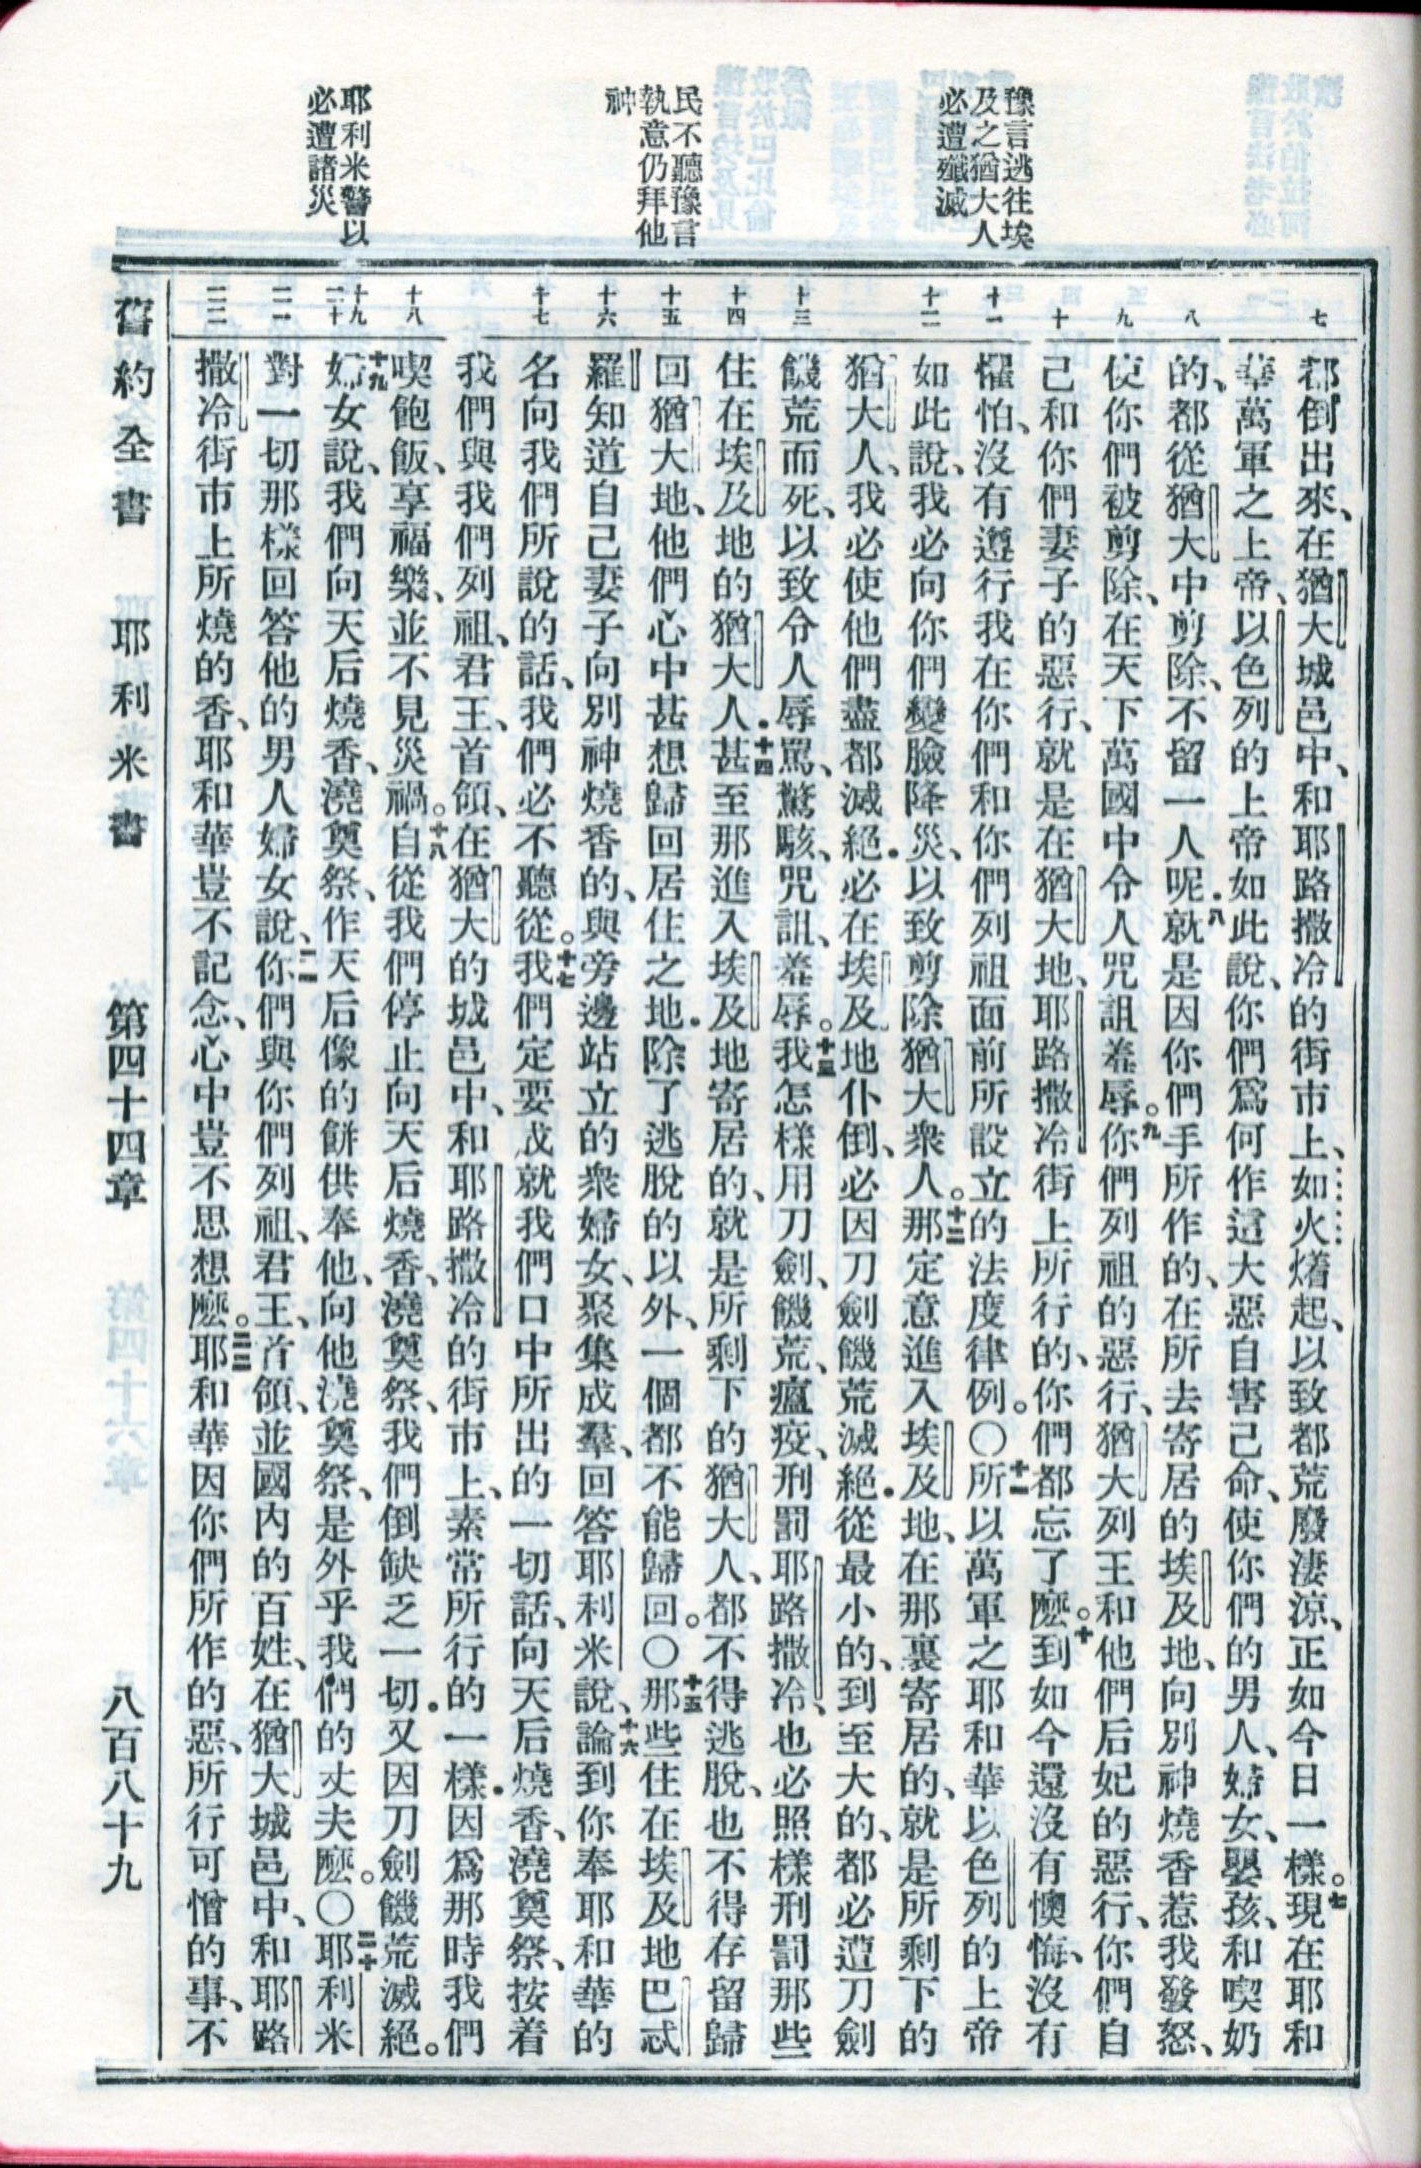 豫言逃往埃
及之猶大人
必遭殲滅
民不聽豫言
執意仍拜他
神
耶利米警以
必遭諸災
七
八
九
十
十一
十二
十三
十四
十五
十六
十七
十八
十九
二十
二一
二二
都倒出來、在猶大城邑中、和耶路撒冷的街市上、如火𤏐起、以致都荒廢淒涼、正如今日一樣。七現在耶和
華萬軍之上帝、以色列的上帝如此說、你們爲何作這大惡自害己命、使你們的男人、婦女、嬰孩、和喫奶
的、都從猶大中剪除、不留一人呢。八就是因你們手所作的、在所去寄居的埃及地、向別神燒香惹我發怒、
使你們被剪除、在天下萬國中令人咒詛羞辱。九你們列祖的惡行、猶大列王和他們后妃的惡行、你們自
己和你們妻子的惡行、就是在猶大地、耶路撒冷街上所行的、你們都忘了麽。十到如今還沒有懊悔、沒有
懼怕、沒有遵行我在你們和你們列祖面前所設立的法度律例。〇十一所以萬軍之耶和華以色列的上帝
如此說、我必向你們變臉降災、以致剪除猶大衆人。十二那定意進入埃及地、在那裏寄居的、就是所剩下的
猶大人、我必使他們盡都滅絕．必在埃及地仆倒、必因刀劍饑荒滅絕．從最小的、到至大的、都必遭刀劍
饑荒而死、以致令人辱罵、驚駭、咒詛、羞辱。十三我怎樣用刀劍、饑荒、瘟疫、刑罰耶路撒冷、也必照樣刑罰那些
住在埃及地的猶大人．十四甚至那進入埃及地寄居的、就是所剩下的猶大人、都不得逃脫、也不得存留歸
回猶大地、他們心中甚想歸回居住之地．除了逃脫的以外、一個都不能歸回。〇十五那些住在埃及地巴忒
羅知道自己妻子向別神燒香的、與旁邊站立的衆婦女、聚集成羣、回答耶利米說、十六論到你奉耶和華的
名向我們所說的話、我們必不聽從。十七我們定要成就我們口中所出的一切話、向天后燒香、澆奠祭、按着
我們與我們列祖、君王、首領、在猶大的城邑中、和耶路撒冷的街市上、素常所行的一樣．因爲那時我們
喫飽飯、享福樂、並不見災禍。十八自從我們停止向天后燒香、澆奠祭、我們倒缺乏一切．又因刀劍饑荒滅絕。
十九婦女說、我們向天后燒香、澆奠祭、作天后像的餅供奉他、向他澆奠祭、是外乎我們的丈夫麽。〇二十耶利米
對一切那樣回答他的男人婦女說、二一你們與你們列祖、君王、首領、並國內的百姓、在猶大城邑中、和耶路
撒冷街市上所燒的香、耶和華豈不記念、心中豈不思想麽。二二耶和華因你們所作的惡、所行可憎的事、不
舊約全書　耶利米書　第四十四章　八百八十九